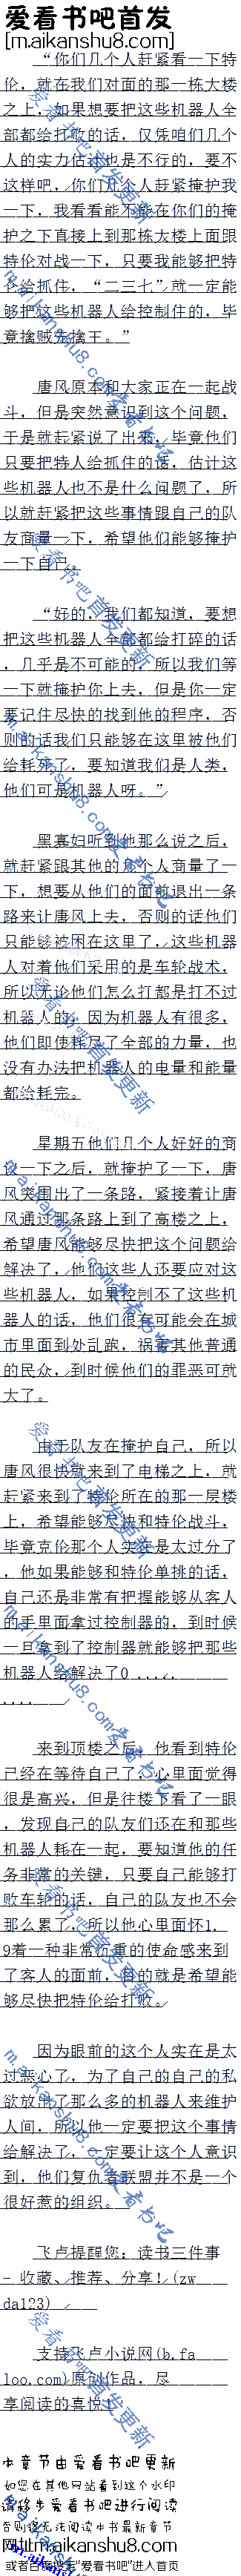 爱看书吧首发
[m.aikanshu8.com]
“你们几个人赶紧看一下特
伦，就在我们对面的那一栋大楼
之上，如果想要把这些机器人全
部都给打败的话，仅凭咱们几个
人的实力估计也是不行的，要不
这样吧，你们几个人赶紧掩护我
一下，我看看能不能在你们的掩
护之下直接上到那栋大楼上面跟
特伦对战一下，只要我能够把特
伦给抓住，“二三七”就一定能
够把这些机器人给控制住的，毕
竟擒贼先擒王。”
唐风原本和大家正在一起战
斗，但是突然意识到这个问题，
于是就赶紧说了出来，毕竟他们
只要把特人给抓住的话，估计这
些机器人也不是什么问题了，所
以就赶紧把这些事情跟自己的队
友商量一下，希望他们能够掩护
一下自己。
“好的，我们都知道，要想
把这些机器人全部都给打碎的话
，几乎是不可能的，所以我们等
一下就掩护你上去，但是你一定
要记住尽快的找到他的程序，否
则的话我们只能够在这里被他们
给耗死了，要知道我们是人类，
他们可是机器人呀。”
黑寡妇听到他那么说之后，
就赶紧跟其他的几个人商量了一
下，想要从他们的面前退出一条
路来让唐风上去，否则的话他们
只能够被困在这里了，这些机器
人对着他们采用的是车轮战术，
所以无论他们怎么打都是打不过
机器人的，因为机器人有很多，
他们即使耗尽了全部的力量，也
没有办法把机器人的电量和能量
都给耗完。
星期五他们几个人好好的商
议一下之后，就掩护了一下，唐
风突围出了一条路，紧接着让唐
风通过那条路上到了高楼之上，
希望唐风能够尽快把这个问题给
解决了，他们这些人还要应对这
些机器人，如果控制不了这些机
器人的话，他们很有可能会在城
市里面到处乱跑，祸害其他普通
的民众，到时候他们的罪恶可就
大了。
由于队友在掩护自己，所以
唐风很快就来到了电梯之上，就
赶紧来到了特伦所在的那一层楼
上，希望能够之直和特伦战斗，
毕竟克伦那个人实在是太过分了
，他如果能够和特伦单挑的话，
自己还是非常有把握能够从客人
的手里面拿过控制器的，到时候
一旦拿到了控制器就能够把那些
机器人给解决了0 ......
....
来到顶楼之后，他看到特伦
已经在等待自己了，心里面觉得
很是高兴，但是往楼下看了一眼
，发现自己的队友们还在和那些
机器人耗在一起，要知道他的任
务非常的关键，只要自己能够打
败车轮的话，自己的队友也不会
那么累了，所以他心里面怀1.
9着一种非常沉重的使命感来到
了客人的面前，目的就是希望能
够尽快把特伦给打败。
因为眼前的这个人实在是太
过恶心了，为了自己的自己的私
欲放出了那么多的机器人来维护
人间，所以他一定要把这个事情
给解决了，一定要让这个人意识
到，他们复仇者联盟并不是一个
很好惹的组织。
飞卢提醒您：读书三件事
- 收藏、推荐、分享！(zw
da123)
支持飞卢小说网(b.fa
loo.com)原创作品，尽
享阅读的喜悦！
本章节由爱看书吧更新
如您在其他网站看到这个水印
请移步爱看书吧进行阅读
否则将无法阅读本书最新章节
网址m.aikanshu8.com
或者百度搜索“爱看书吧”进入首页